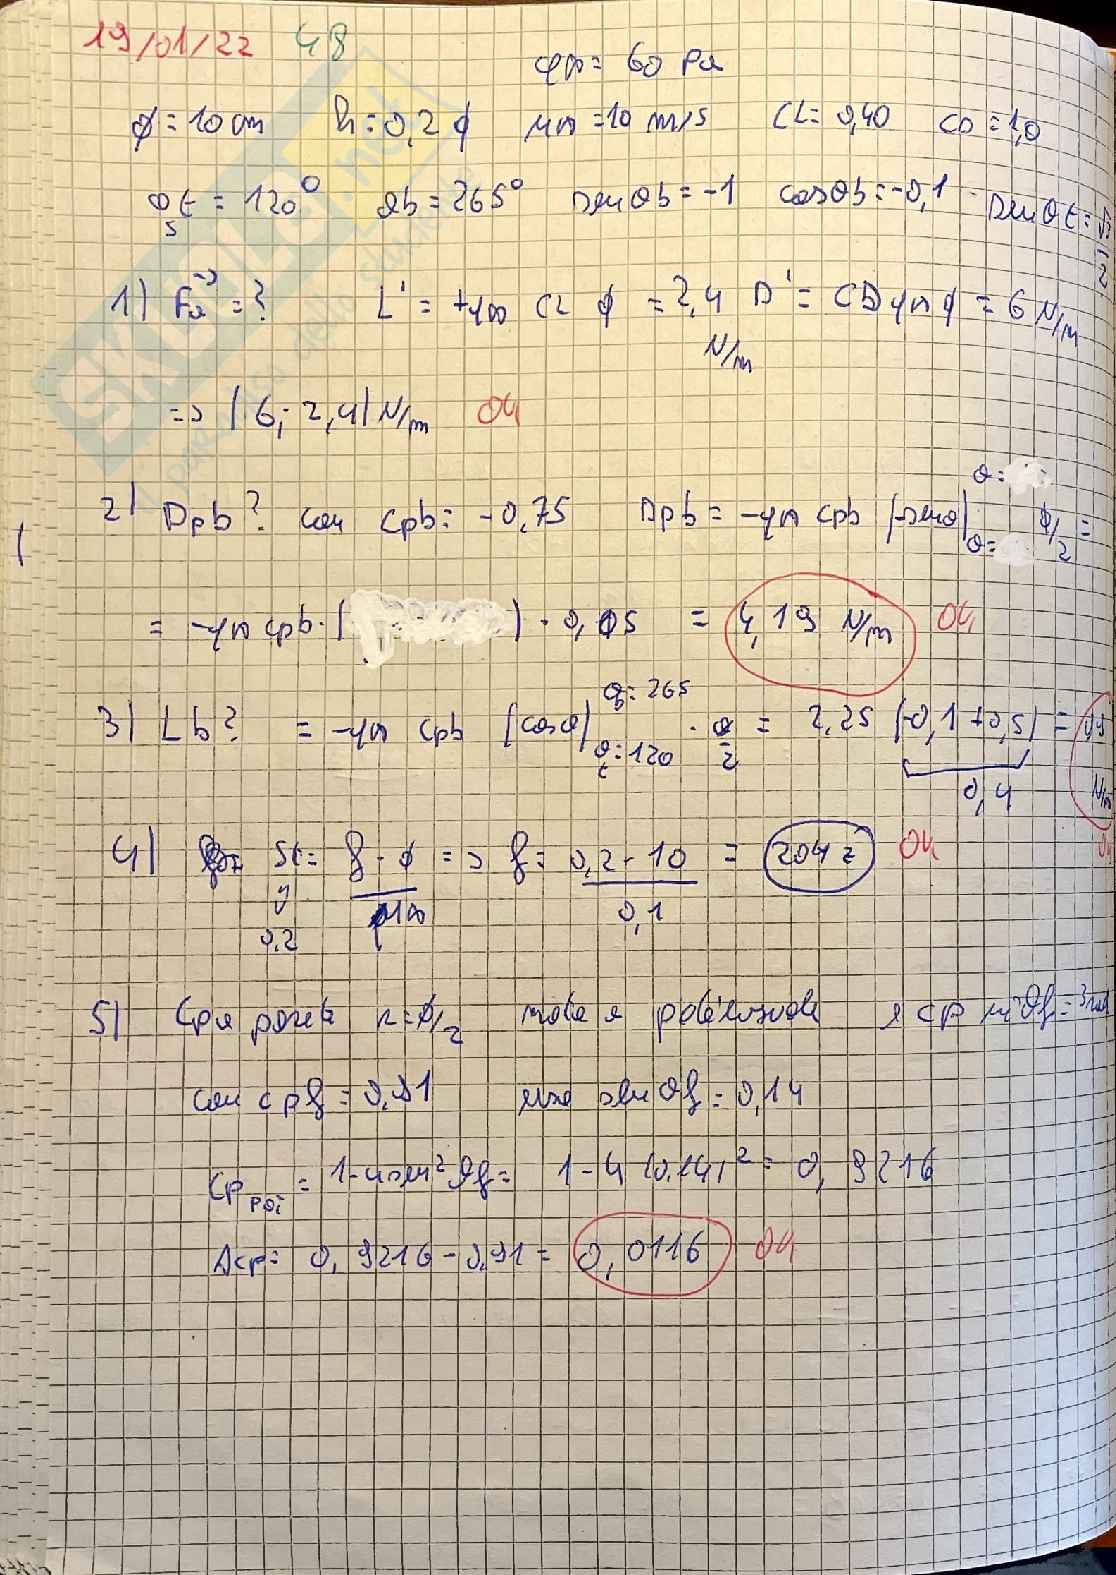 19/01/22 48
q∞ = 60 Pa
φ = 10 cm h = 0,2 φ μ∞ = 10 m/s CL = 0,40 CD = 1,0
θt = 120° θb = 265° senθb = -1 cosθb = -0,1 senθt = √3/2
s
1) Fa = ? L' = +q∞ CL φ = 2,4 N/m D' = CD q∞ φ = 6 N/m
=> (6; 2,4) N/m OK
2) Dpb? con Cpb = -0,75 Dpb = -q∞ Cpb (-senθ) θ= θ= φ/2 =
= -q∞ cpb · ( ) · 0,05 = 4,19 N/m OK
3) Lb? = -q∞ Cpb (cosθ) θb = 265 θt = 120 · φ/2 = 2,25 (-0,1 + 0,5) = 0,9 N/m
0,4
4) St = f · φ / μ∞ => f = 0,2 · 10 / 0,1 = 20Hz OK
0,2
5) Cp a parete r = φ/2 e cp θf = 3 rad
con cpf = 0,91 senθf = 0,14
Cp pot = 1 - 4 sen² θf = 1 - 4 (0,14)² = 0,9216
Δcp = 0,9216 - 0,91 = 0,0116 OK
SKUOLA.net